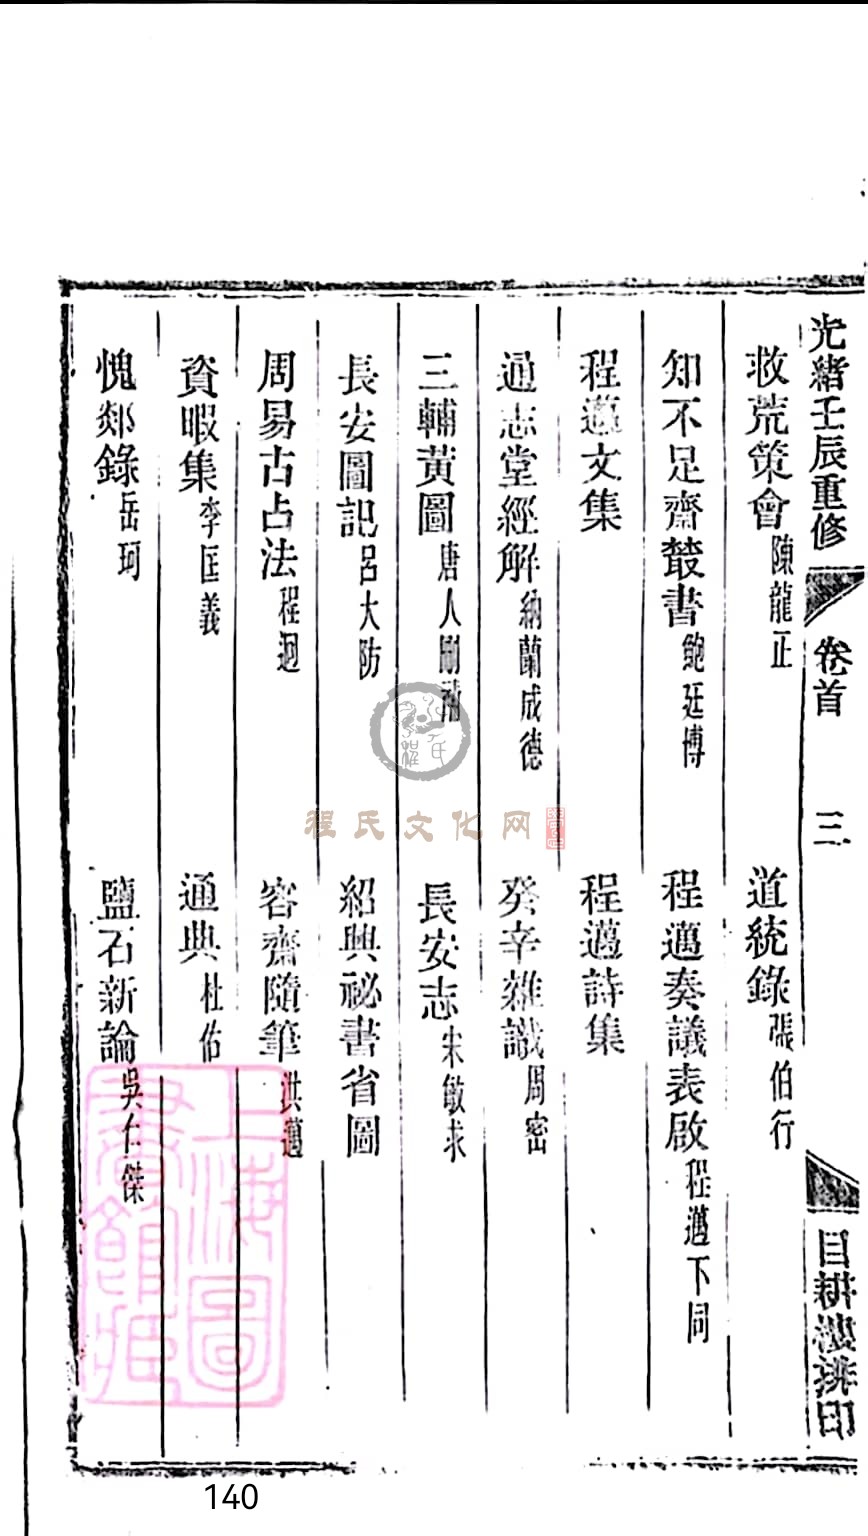 光緒壬辰重修
卷首
三
救荒策會陳龍正
道統錄張伯行
知不足齋叢書鮑廷博
程邁奏議表啟程邁下同
程邁文集
程邁詩集
通志堂經解納蘭成德
癸辛雜識周密
三輔黃圖唐人刪補
長安志宋敏求
長安圖記呂大防
紹興祕書省圖
周易古占法程迥
容齋隨筆洪邁
資暇集李匡義
通典杜佑
愧郯錄岳珂
鹽石新論吳仁傑
程氏文化网
程氏
上海圖書館藏
140